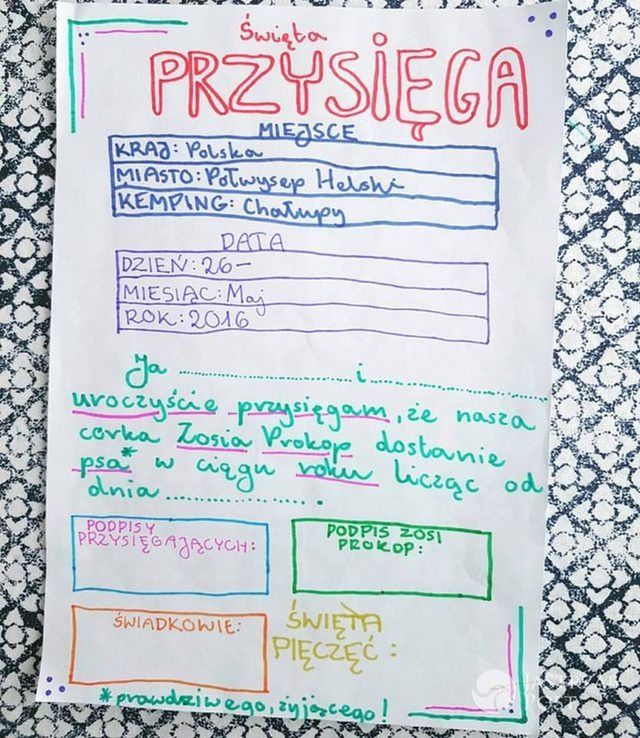 Święta
PRZYSIĘGA
MIEJSCE
KRAJ: Polska
MIASTO: Połwysep Helski
KEMPING: Chałupy
DATA
DZIEŃ: 26-
MIESIĄC: Maj
ROK: 2016
Ja .................... i ....................
uroczyście przysięgam, że nasza
córka Zosia Prokop dostanie
psa* w ciągu roku licząc od
dnia .............
PODPISY
PRZYSIĘGAJĄCYCH:
PODPIS ZOSI
PROKOP:
ŚWIADKOWIE:
ŚWIĘTA
PIĘCZĘĆ:
*prawdziwego, żyjącego!